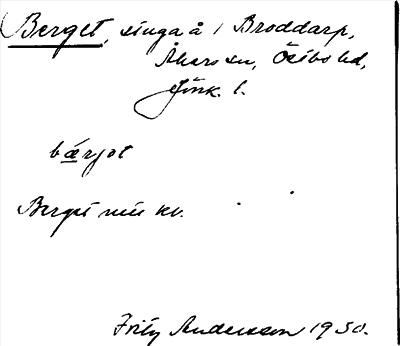 Berget, stuga å 1 Broddarp,
Åkers sn, Östbo hd,
Jönk. l.
bærjət
Berget nu kv.
Fritz Andersson 1930.